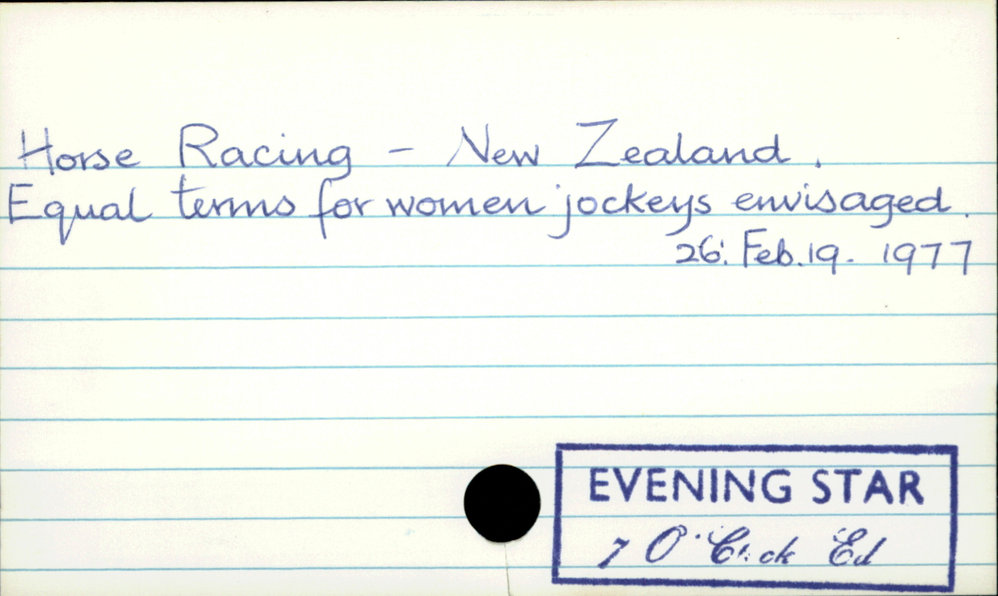 Horse Racing - New Zealand.
Equal terms for women jockeys envisaged.
26: Feb. 19. 1977
EVENING STAR
7 O'Clock Ed